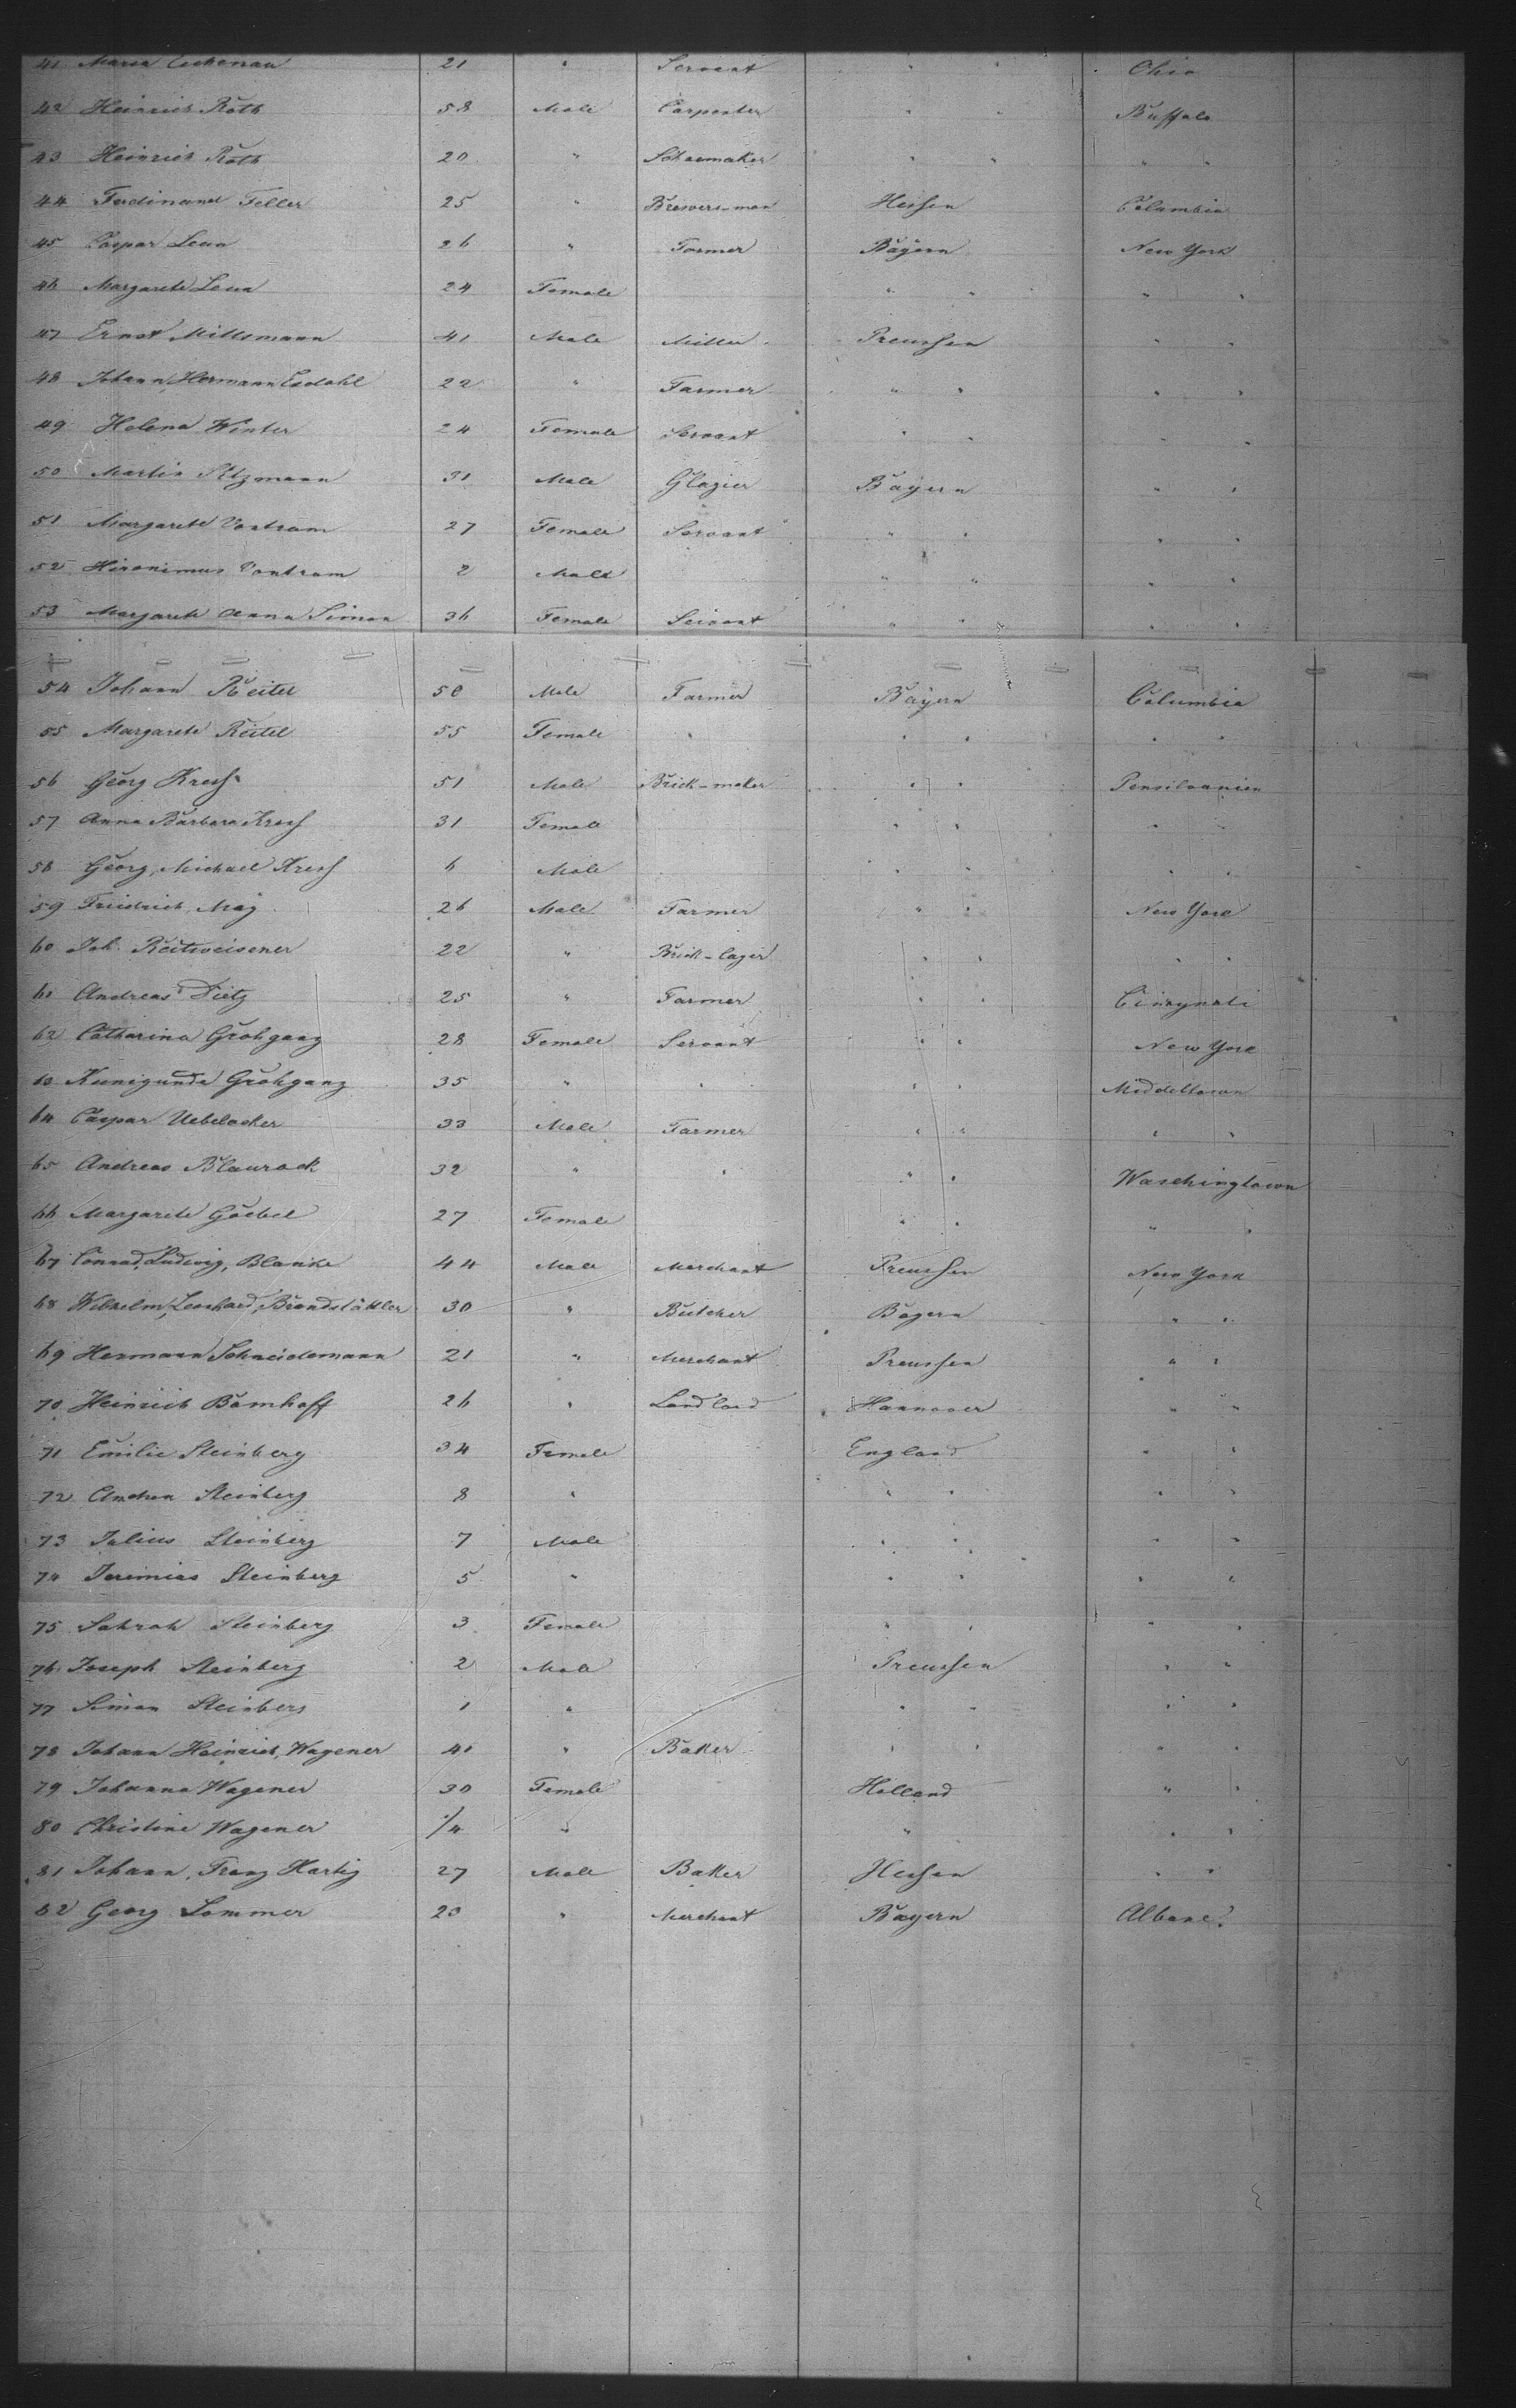 41 Maria Eschenau 21 " Servant " " Ohio
42 Heinrich Roth 58 Male Carpenter " " Buffalo
43 Heinrich Roth 20 " Schoemaker " " " "
44 Ferdinand Feller 25 " Brewers-man Hessen Columbia
45 Caspar Leun 26 " Farmer Bayern New York
46 Margarete Leun 24 Female " " " "
47 Ernst Millsmann 41 Male Miller Preussen " "
48 Johann, Hermann 22 " Farmer " " " "
49 Helena Winter 24 Female Servant " " " "
50 Martin 31 Male Glazier Bayern " "
51 Margarete Vontram 27 Female Servant " " " "
52 Hironimus Vontram 2 Male " " " "
53 Margarete Anna Simon 36 Female Servant " " " "
54 Johann Reitel 50 Male Farmer Bayern Columbia
55 Margarete Reitel 55 Female " " " " "
56 Georg Kress 51 Male Brick-maker " " Pensilvanien
57 Anna Barbara Kress 31 Female " " " "
58 Georg, Michael Kress 6 Male " " " "
59 Friedrich, May 26 Male Farmer " " New York
60 Joh. Reitweisener 22 " Brick-layer " " " "
61 Andreas Dietz 25 " Farmer " " Cincynati
62 Catharina Grohganz 28 Female Servant " " New York
63 Kunigunde Grohganz 35 " " " " Middeltown
64 Caspar Uebelacker 33 Male Farmer " " " "
65 Andreas Blaurock 32 " " " " Waschingtown
66 Margarete Goebel 27 Female " " " "
67 Conrad, Ludwig, Blanke 44 Male Merchant Preussen New York
68 Wilhelm, Leonhard, Brandstättler 30 " Butcher Bayern " "
69 Hermann Schneidemann 21 " Merchant Preussen " "
70 Heinrich Bomhoff 26 " Landlord Hannover " "
71 Emilie Steinberg 34 Female England " "
72 Steinberg 8 " " " " "
73 Julius Steinberg 7 Male " " " "
74 Jeremias Steinberg 5 " " " " "
75 Sahrah Steinberg 3 Female " " " "
76 Joseph Steinberg 2 Male Preussen " "
77 Simon Steinberg 1 " " " " "
78 Johann Heinrich, Wagener 41 " Baker " " " "
79 Johanna Wagener 30 Female Holland " "
80 Christine Wagener 1/4 " " " "
81 Johann, Franz Hartig 27 Male Baker Hessen " "
82 Georg Sommer 23 " Merchant Bayern Albane?